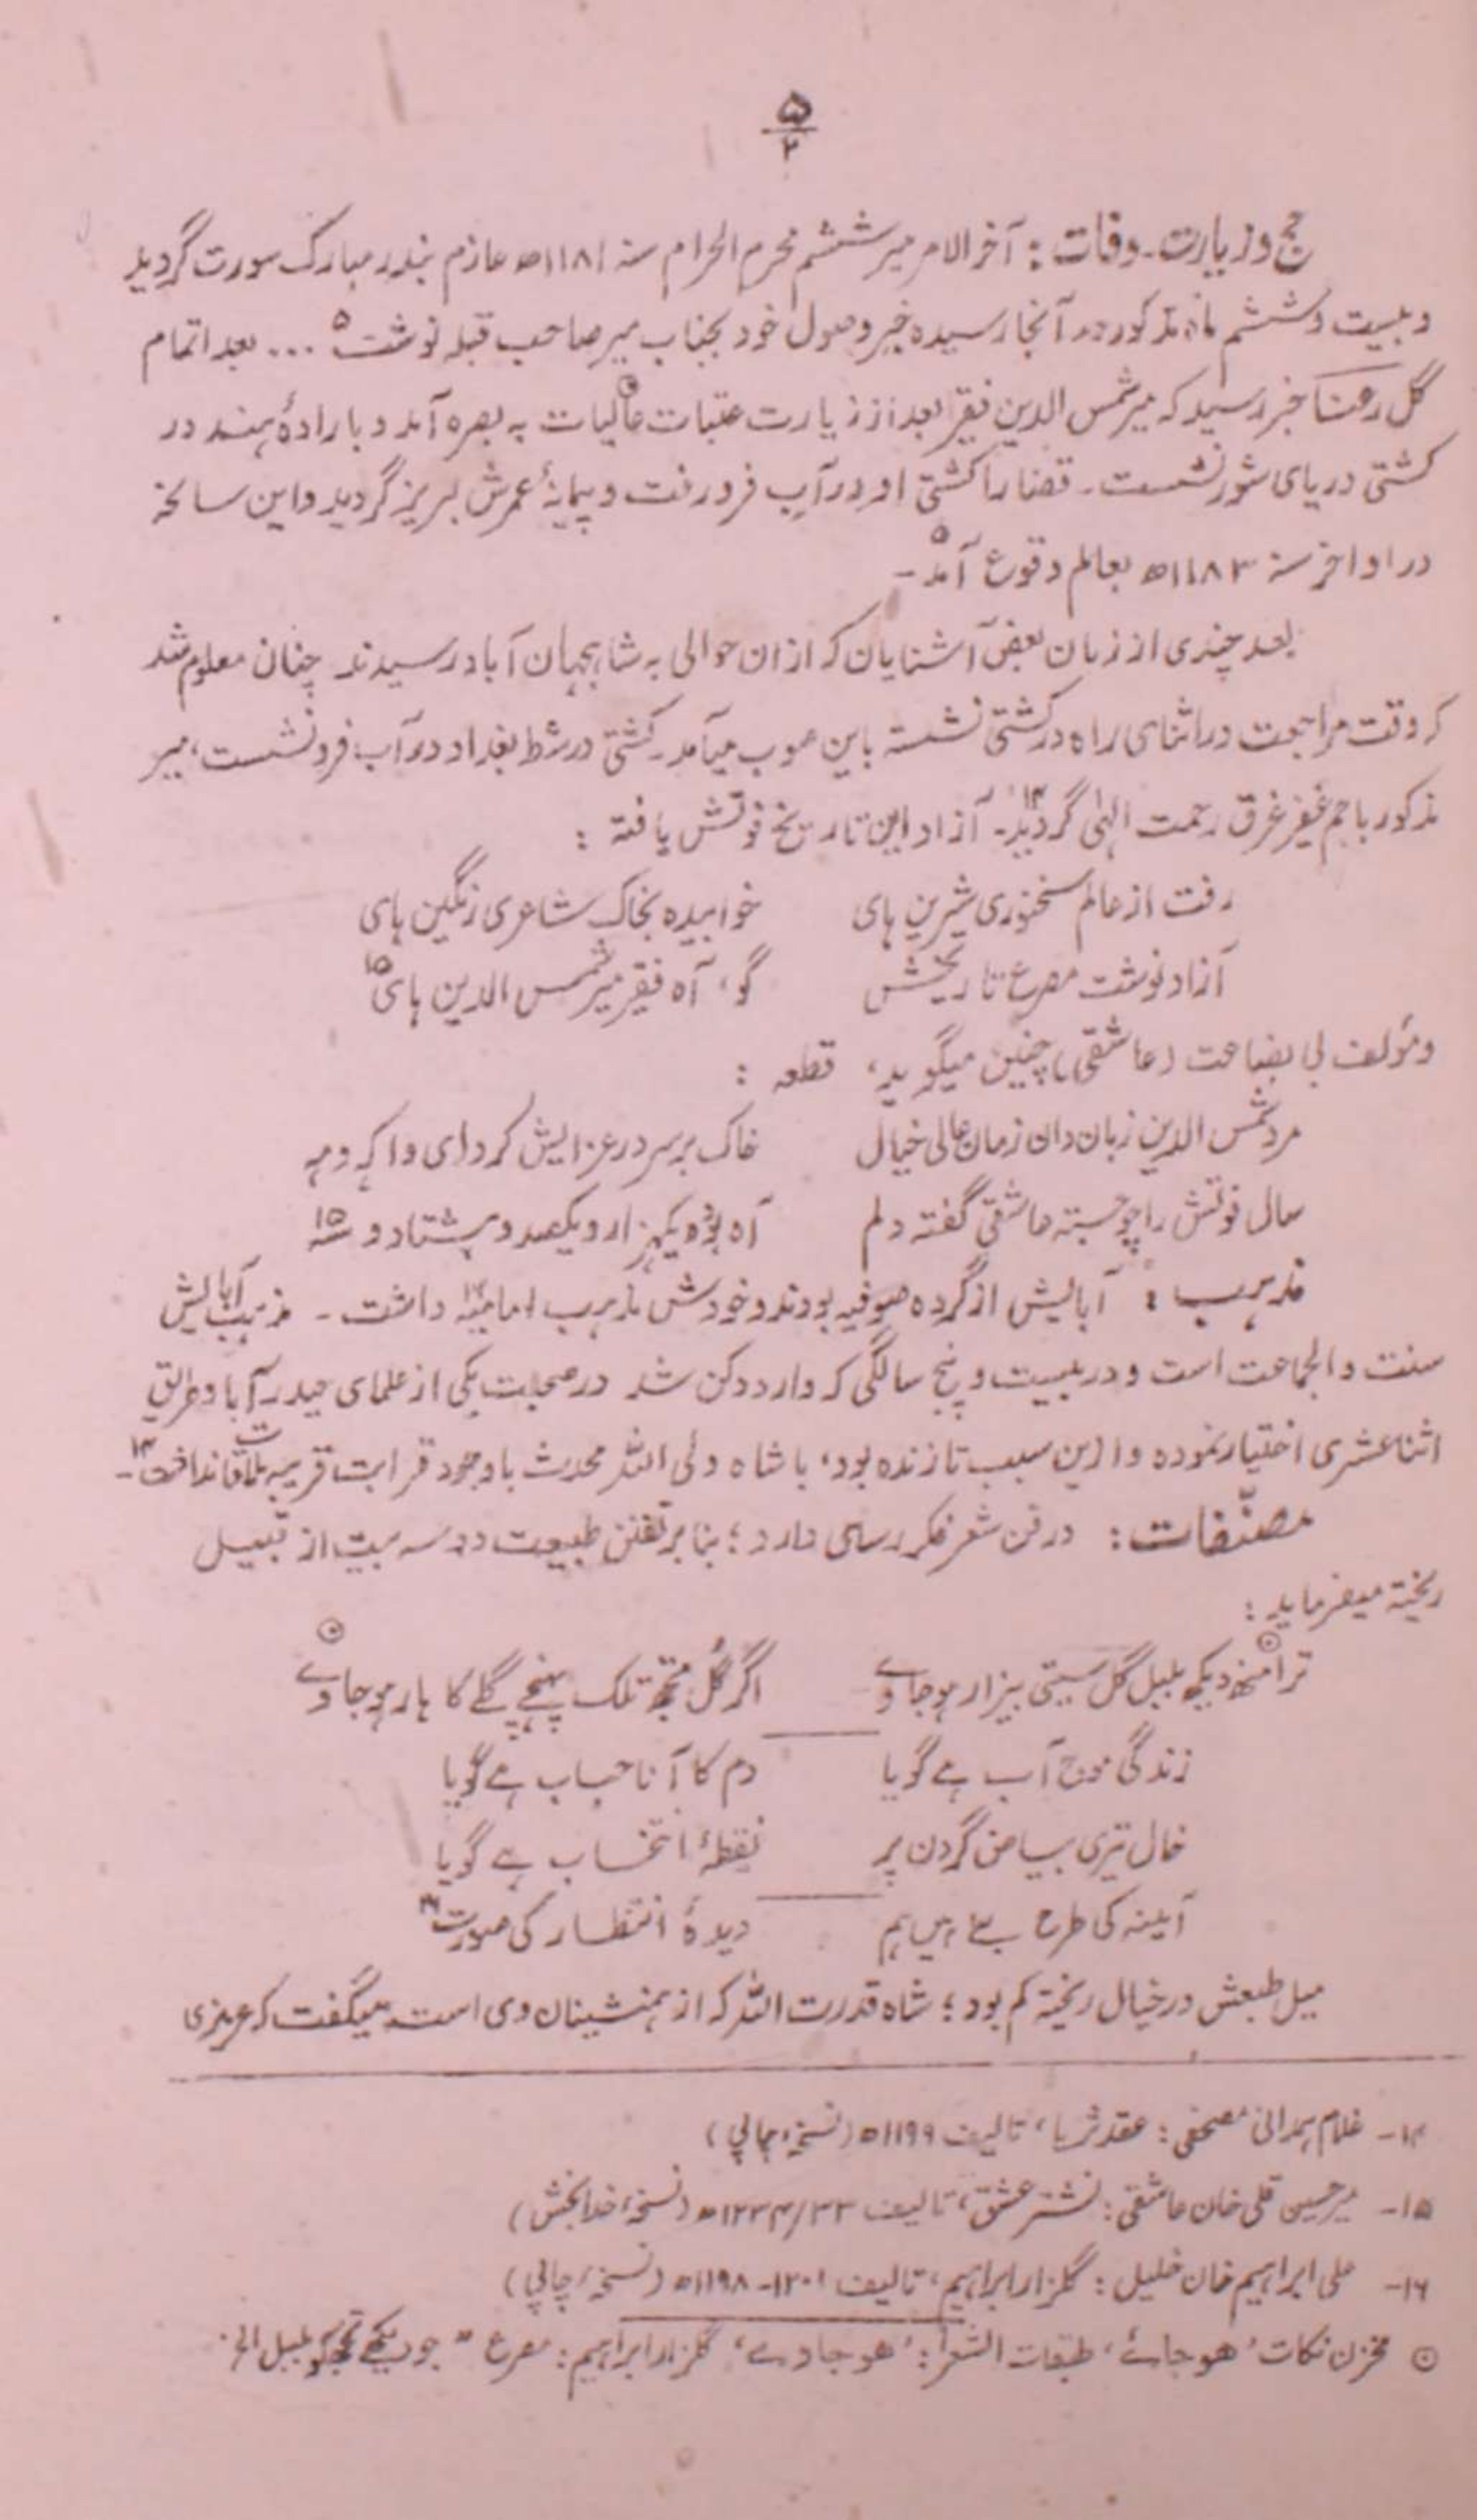 ۵
۲
حج و زیارت۔ وفات: آخر الامر میر ششم محرم الحرام سنہ ۱۱۸۱ھ عازم بندر مبارک سورت گردید
و بیست و ششم ماہ مذکور در آنجا رسیدہ خبر وصول خود بجناب میر صاحب قبلہ نوشت۵ ... بعد اتمام
گل رعنا خبر رسید کہ میر شمس الدین فقیر بعد از زیارت عتبات عالیات بہ بصرہ آمد و بارادۂ ہند در
کشتی دریای شور نشست۔ قضا را کشتی او در آب فرو رفت و پیمانۂ عمرش لبریز گردید و این سانحہ
در اواخر سنہ ۱۱۸۳ھ بعالم وقوع آمد۵۔
بعد چندی از زبان بعض آشنایان کہ از ان حوالی بہ شاہجہان آباد رسیدند چنان معلوم شد
کہ وقت مراجعت در اثنای راہ در کشتی نشستہ باین صوب میآمد۔ کشتی در شط بغداد در آب فرو نشست، میر
مذکور با جم غفیر غرق رحمت الہٰی گردید۱۴۔ آزاد این تاریخ فوتش یافتہ :
رفت از عالم سخنوری شیرین ہای خوابیدہ بخاک شاعری رنگین ہای
آزاد نوشت مصرع تاریخش گو، آہ فقیر میر شمس الدین ہای۱۵
و مؤلف بی بضاعت (عاشقی) چنین میگوید، قطعہ :
مرد شمس الدین زبان دان زمان عالی خیال خاک بر سر در عزایش کرد ای وا کہ و مہ
سال فوتش را چو جستہ عاشقی گفتہ دلم آہ بودہ یکہزار و یکصد و ہشتاد و سہ۱۵
مذہب : آبایش از گروہ صوفیہ بودند و خودش مذہب امامیہ۱۲ داشت ۔ مذہب آبایش
سنت و الجماعت است و در بیست و پنج سالگی کہ وارد دکن شد در صحبت یکی از علمای حیدرآباد طریق
اثنا عشری اختیار نمودہ و ازین سبب تا زندہ بود، با شاہ ولی اللہ محدث باوجود قرابت قریبہ ملاقات نداشت۱۴۔
مصنّفات : در فن شعر فکر رسای دارد ؛ بنابر تفنن طبیعت دو سہ بیت از قبیل
ریختہ میفرماید :
ترا منہ دیکھ بلبل گل سیتی بیزار ہو جاوے اگر گُل تجھ تلک پہنچے گلے کا ہار ہو جاوے
زندگی موج آب ہے گویا دم کا آنا حباب ہے گویا
خال تیری بیاض گردن پر نقطۂ انتخاب ہے گویا
آئینہ کی طرح ہیں ہم دیدۂ انتظار کی صورت۱۶
میل طبعش در خیال ریختہ کم بود ؛ شاہ قدرت اللہ کہ از ہمنشینان وی است، میگفت کہ عزیزی
۱۴۔ غلام ہمدانی مصحفی : عقد ثریا ، تالیف ۱۱۹۹ھ (نسخۂ چاپی)
۱۵۔ میر حسین قلی خان عاشقی : نشتر عشق ، تالیف ۱۲۲۴/۳۳ھ (نسخۂ خدابخش)
۱۶۔ علی ابراہیم خان خلیل : گلزار ابراہیم، تالیف ۱۲۰۱-۱۱۹۸ھ (نسخۂ چاپی)
⊙ مخزن نکات 'ھو جائے' ، طبقات الشعرا : 'ھو جاوے' ، گلزار ابراہیم : مصرع " جو دیکھے تجھ کو بلبل الخ.